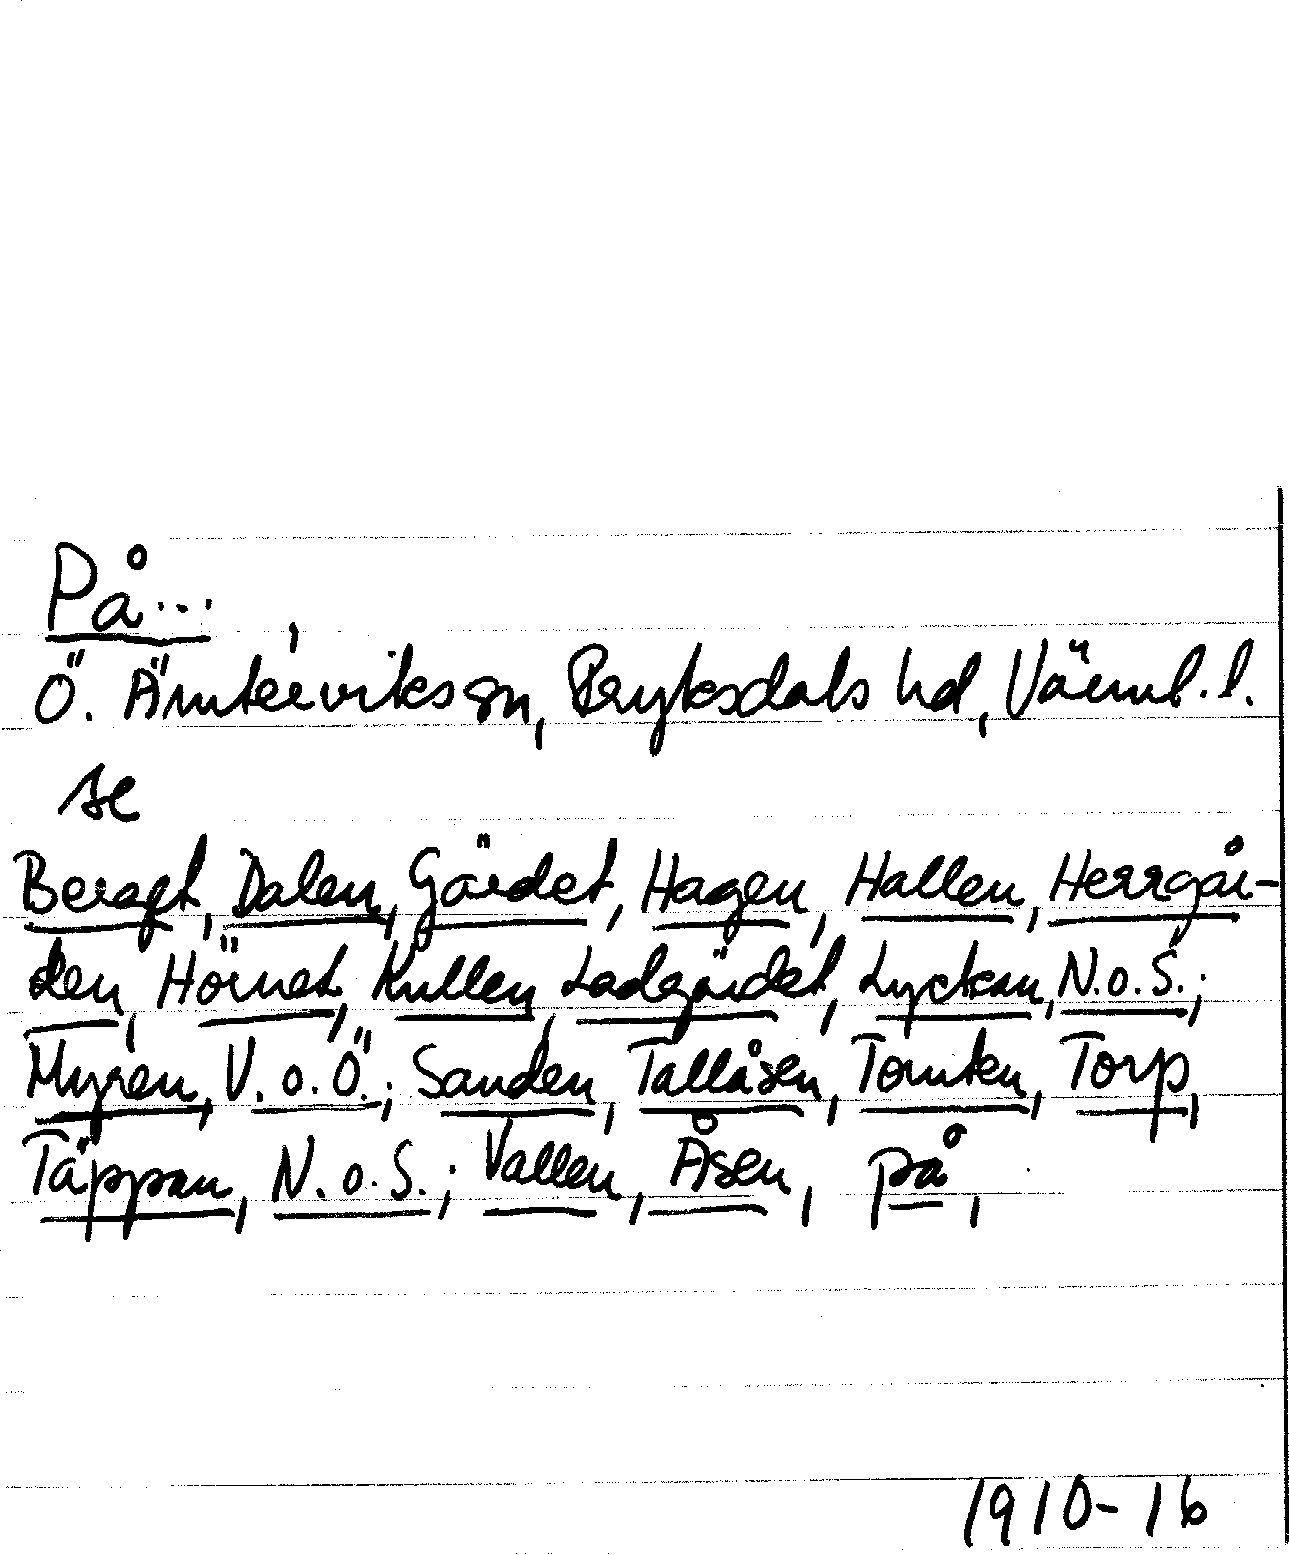 På... ,
Ö. Ämterviks sn, Fryksdals hd, Värml. l.
se
Berget, Dalen, Gärdet, Hagen, Hallen, Herrgår-
den, Hörnet, Kullen, Ladegärdet, Lyckan, N.o.S.;
Myren, V.o.Ö.; Sanden, Tallåsen, Tomten, Torp,
Täppan, N.o.S.; Vallen, Åsen, på,
1910-16